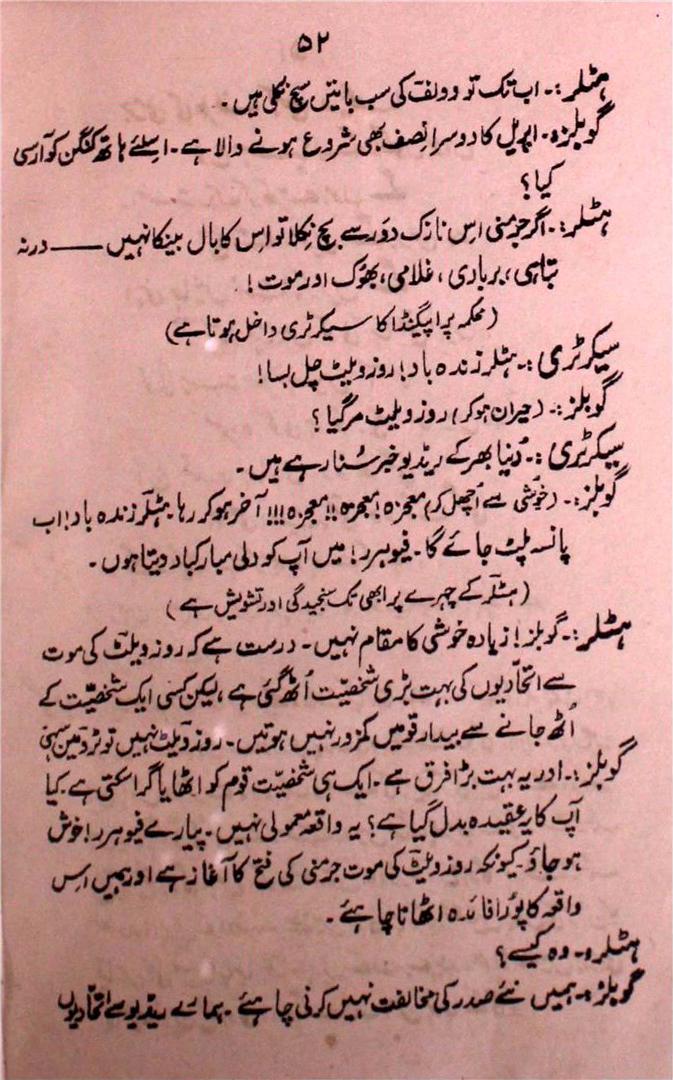 ۵۲
ہٹلر:۔ اب تک تو وولف کی سب باتیں سچ نکلی ہیں۔
گوبلز:۔ اپریل کا دوسرا نصف بھی شروع ہونے والا ہے۔ اسلئے ہاتھ کنگن کو آرسی
کیا؟
ہٹلر:۔ اگر جرمنی اس نازک دَور سے بچ نکلا تو اس کا بال بینکا نہیں —— ورنہ
تباہی، بربادی، غلامی، بھُوک اور موت!
(محکمہ پراپیگنڈا کا سیکرٹری داخل ہوتا ہے)
سیکرٹری:۔ ہٹلر زندہ باد! روزویلٹ چل بسا!
گوبلز:۔ (حیران ہو کر) روزویلٹ مر گیا؟
سیکرٹری:۔ دُنیا بھر کے ریڈیو خبر سُنا رہے ہیں۔
گوبلز:۔ (خوشی سے اُچھل کر) معجزہ! معجزہ!! معجزہ!!! آخر ہو کر رہا۔ ہٹلر زندہ باد! اب
پانسہ پلٹ جائے گا۔ فیوہرر! میں آپ کو دلی مبارکباد دیتا ہوں۔
(ہٹلر کے چہرے پر ابھی تک سنجیدگی اور تشویش ہے)
ہٹلر:۔ گوبلز! زیادہ خوشی کا مقام نہیں۔ درست ہے کہ روزویلٹ کی موت
سے اتحادیوں کی بہت بڑی شخصیّت اُٹھ گئی ہے، لیکن کسی ایک شخصیّت کے
اُٹھ جانے سے بیدار قومیں کمزور نہیں ہوتیں۔ روزویلٹ نہیں تو ٹرومین سہی
گوبلز:۔ اور یہ بہت بڑا فرق ہے۔ ایک ہی شخصیّت قوم کو اٹھا یا گرا سکتی ہے۔ کیا
آپ کا یہ عقیدہ بدل گیا ہے؟ یہ واقعہ معمولی نہیں۔ پیارے فیوہرر! خوش
ہو جاؤ۔ کیونکہ روزویلٹ کی موت جرمنی کی فتح کا آغاز ہے اور ہمیں اس
واقعہ کا پُورا فائدہ اٹھانا چاہئے۔
ہٹلر:۔ وہ کیسے؟
گوبلز:۔ ہمیں نئے صدر کی مخالفت نہیں کرنی چاہئے۔ ہمارے ریڈیو سے اتحادیوں